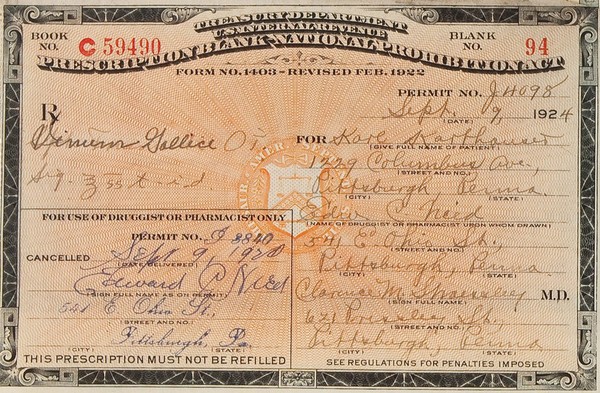 TREASURY DEPARTMENT
U.S. INTERNAL REVENUE
PRESCRIPTION BLANK - NATIONAL PROHIBITION ACT
FORM NO. 1403 - REVISED FEB. 1922
BOOK NO. C 59490
BLANK NO. 94
PERMIT NO. J4098
Sept. 9 1924
(DATE)
Rx
Vinum Gallice
Sig. ʒss t.i.d.
FOR Karl Karthauser
(GIVE FULL NAME OF PATIENT)
1729 Columbus Ave,
(STREET AND NO.)
Pittsburgh, Penna.
(CITY) (STATE)
Edw C Nied
(NAME OF DRUGGIST OR PHARMACIST UPON WHOM DRAWN)
541 E Ohio St,
(STREET AND NO.)
Pittsburgh, Penna.
(CITY) (STATE)
Clarence M. M.D.
(SIGN FULL NAME)
621 Pressley St,
(STREET AND NO.)
Pittsburgh, Penna
(CITY) (STATE)
SEE REGULATIONS FOR PENALTIES IMPOSED
FOR USE OF DRUGGIST OR PHARMACIST ONLY
PERMIT NO. J 8840
CANCELLED Sept 9, 1924
(DATE DELIVERED)
Edward C Nied
(SIGN FULL NAME AS ON PERMIT)
541 E Ohio St,
(STREET AND NO.)
Pittsburgh, Pa.
(CITY) (STATE)
THIS PRESCRIPTION MUST NOT BE REFILLED